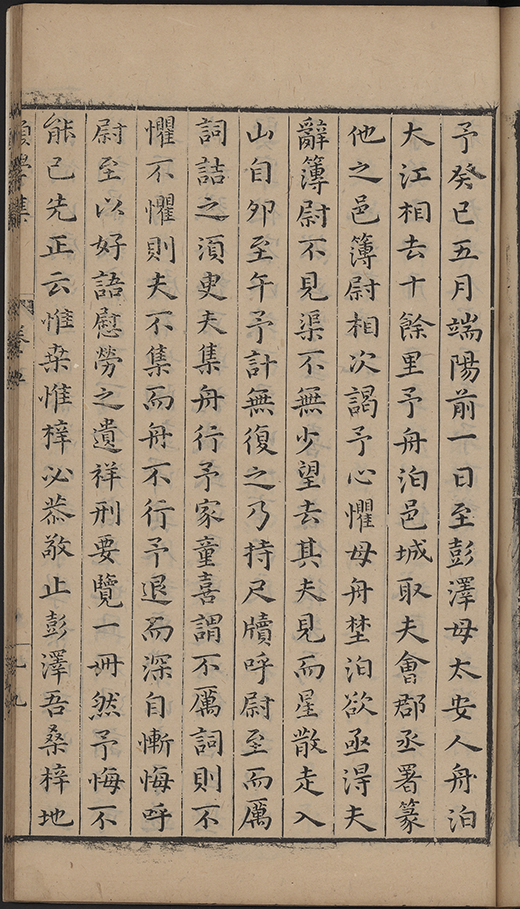 予癸巳五月端陽前一日至彭澤母太安人舟泊
大江相去十餘里予舟泊邑城取夫會郡丞署篆
他之邑簿尉相次謁予心懼母舟埜泊欲亟淂夫
辭簿尉不見渠不無少望去其夫見而星散走入
山自夘至午予計無復之乃持尺牘呼尉至而厲
詞詰之湏臾夫集舟行予家童喜謂不厲詞則不
懼不懼則夫不集而舟不行予退而深自慚悔呼
尉至以好語慰勞之遺祥刑要覽一冊然予悔不
能已先正云惟桒惟梓必恭敬止彭澤吾桑梓地